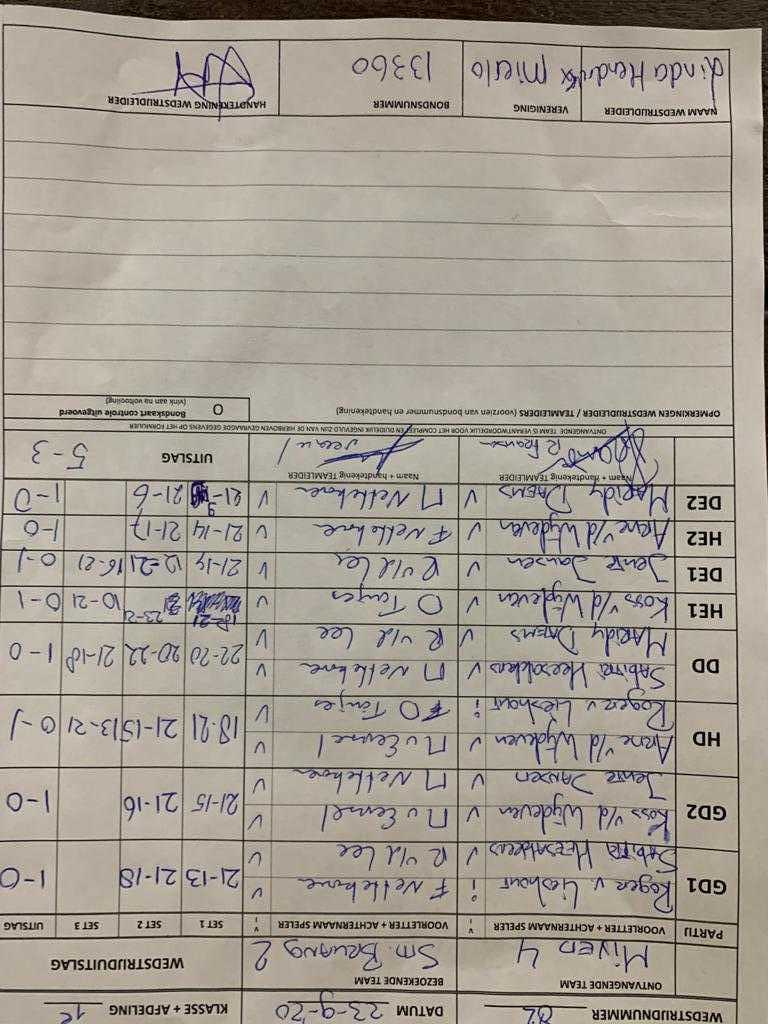 WEDSTRIJDNUMMER 82 DATUM 23-9-20 KLASSE + AFDELING
ONTVANGENDE TEAM BEZOEKENDE TEAM WEDSTRIJDUITSLAG
Miven 4 2
PARTIJ VOORLETTER + ACHTERNAAM SPELER i v VOORLETTER + ACHTERNAAM SPELER i v SET 1 SET 2 SET 3 UITSLAG
GD1 Roger v. Lieshout i F Nellekove v 21-13 21-18 1-0
Sabitta v R vld Lee v
GD2 Koss v/d Wijdeven v v 21-15 21-16 1-0
Jente Jansen v M Nellekove v
HD Arne v/d Wijdeven v v 18-21 21-15 13-21 0-1
Roger v. Lieshout i O Tonjes v
DD Sabitta v M Nellekove v 22-20 20-22 21-18 1-0
Maridy Daems v R vld Lee v
HE1 Koss v/d Wijdeven v O Tonjes v 10-21 0-1
DE1 Jente Jansen v R vld Lee v 21-14 12-21 16-21 0-1
HE2 Arne v/d Wijdeven v F Nellekove v 21-14 21-17 1-0
DE2 Maridy Daems v M Nellekove v 21-9 21-6 1-0
Naam + Handtekening TEAMLEIDER Naam + handtekenig TEAMLEIDER UITSLAG 5-3
ONTVANGENDE TEAM IS VERANTWOORDELIJK VOOR HET COMPLEET EN DUIDELIJK INGEVULD ZIJN VAN DE HIERBOVEN GEVRAAGDE GEGEVENS OP HET FORMULIER
OPMERKINGEN WEDSTRIJDLEIDER / TEAMLEIDERS (voorzien van bondsnummer en handtekening) O Bondskaart controle uitgevoerd
(vink aan na voltooiing)
NAAM WEDSTRIJDLEIDER VERENIGING BONDSNUMMER HANDTEKENING WEDSTRIJDLEIDER
Linda Hendrikx Mierlo 13360